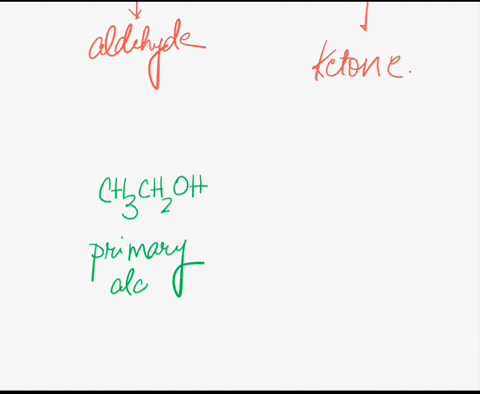 aldehyde
Ketone.
CH3CH2OH
primary
alc